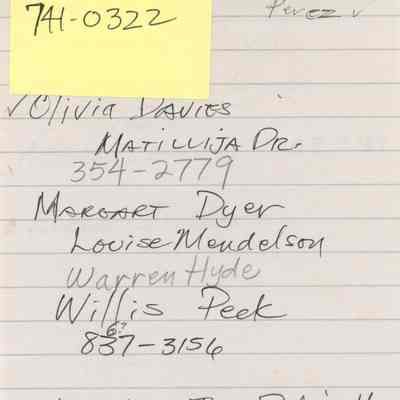 741-0322
Perez ✓
✓ Olivia DAVIES
MATILLIJA DR.
354-2779
MARGART Dyer
Louise Mendelson
Warren Hyde
Willis Peek
6?
837-3156